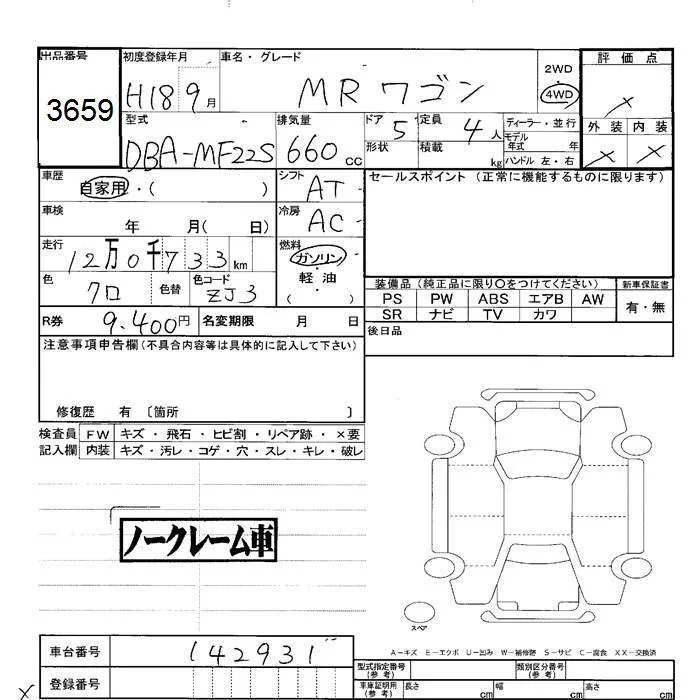 出品番号 初度登録年月 車名・グレード 評価点
3659 H18 9月 MRワゴン 2WD 4WD ×
型式 排気量 ドア 5 定員 4人 ディーラー・並行 外装 内装
DBA-MF22S 660cc 形状 積載 kg モデル年式 年 ハンドル 左・右 × ×
車歴 自家用・( ) シフト AT セールスポイント (正常に機能するものに限ります)
車検 年 月( 日) 冷房 AC
走行 12万0千733km 燃料 ガソリン
色 クロ 色替 色コード ZJ3 軽油 ( )
装備品 (純正品に限り○をつけてください) 新車保証書
PS PW ABS エアB AW 有・無
SR ナビ TV カワ
R券 9.400円 名変期限 月 日 後日品
注意事項申告欄(不具合内容等は具体的に記入して下さい)
修復歴 有 〔箇所 〕
検査員 FW キズ・飛石・ヒビ割・リペア跡・×要
記入欄 内装 キズ・汚レ・コゲ・穴・スレ・キレ・破レ
ノークレーム車
スペア
A-キズ E-エクボ U-凹み W-補修跡 S-サビ C-腐食 XX-交換済
車台番号 142931
登録番号
型式指定番号(参考) 類別区分番号(参考)
車庫証明用(参考) 長さ cm 幅 cm 高さ cm
×